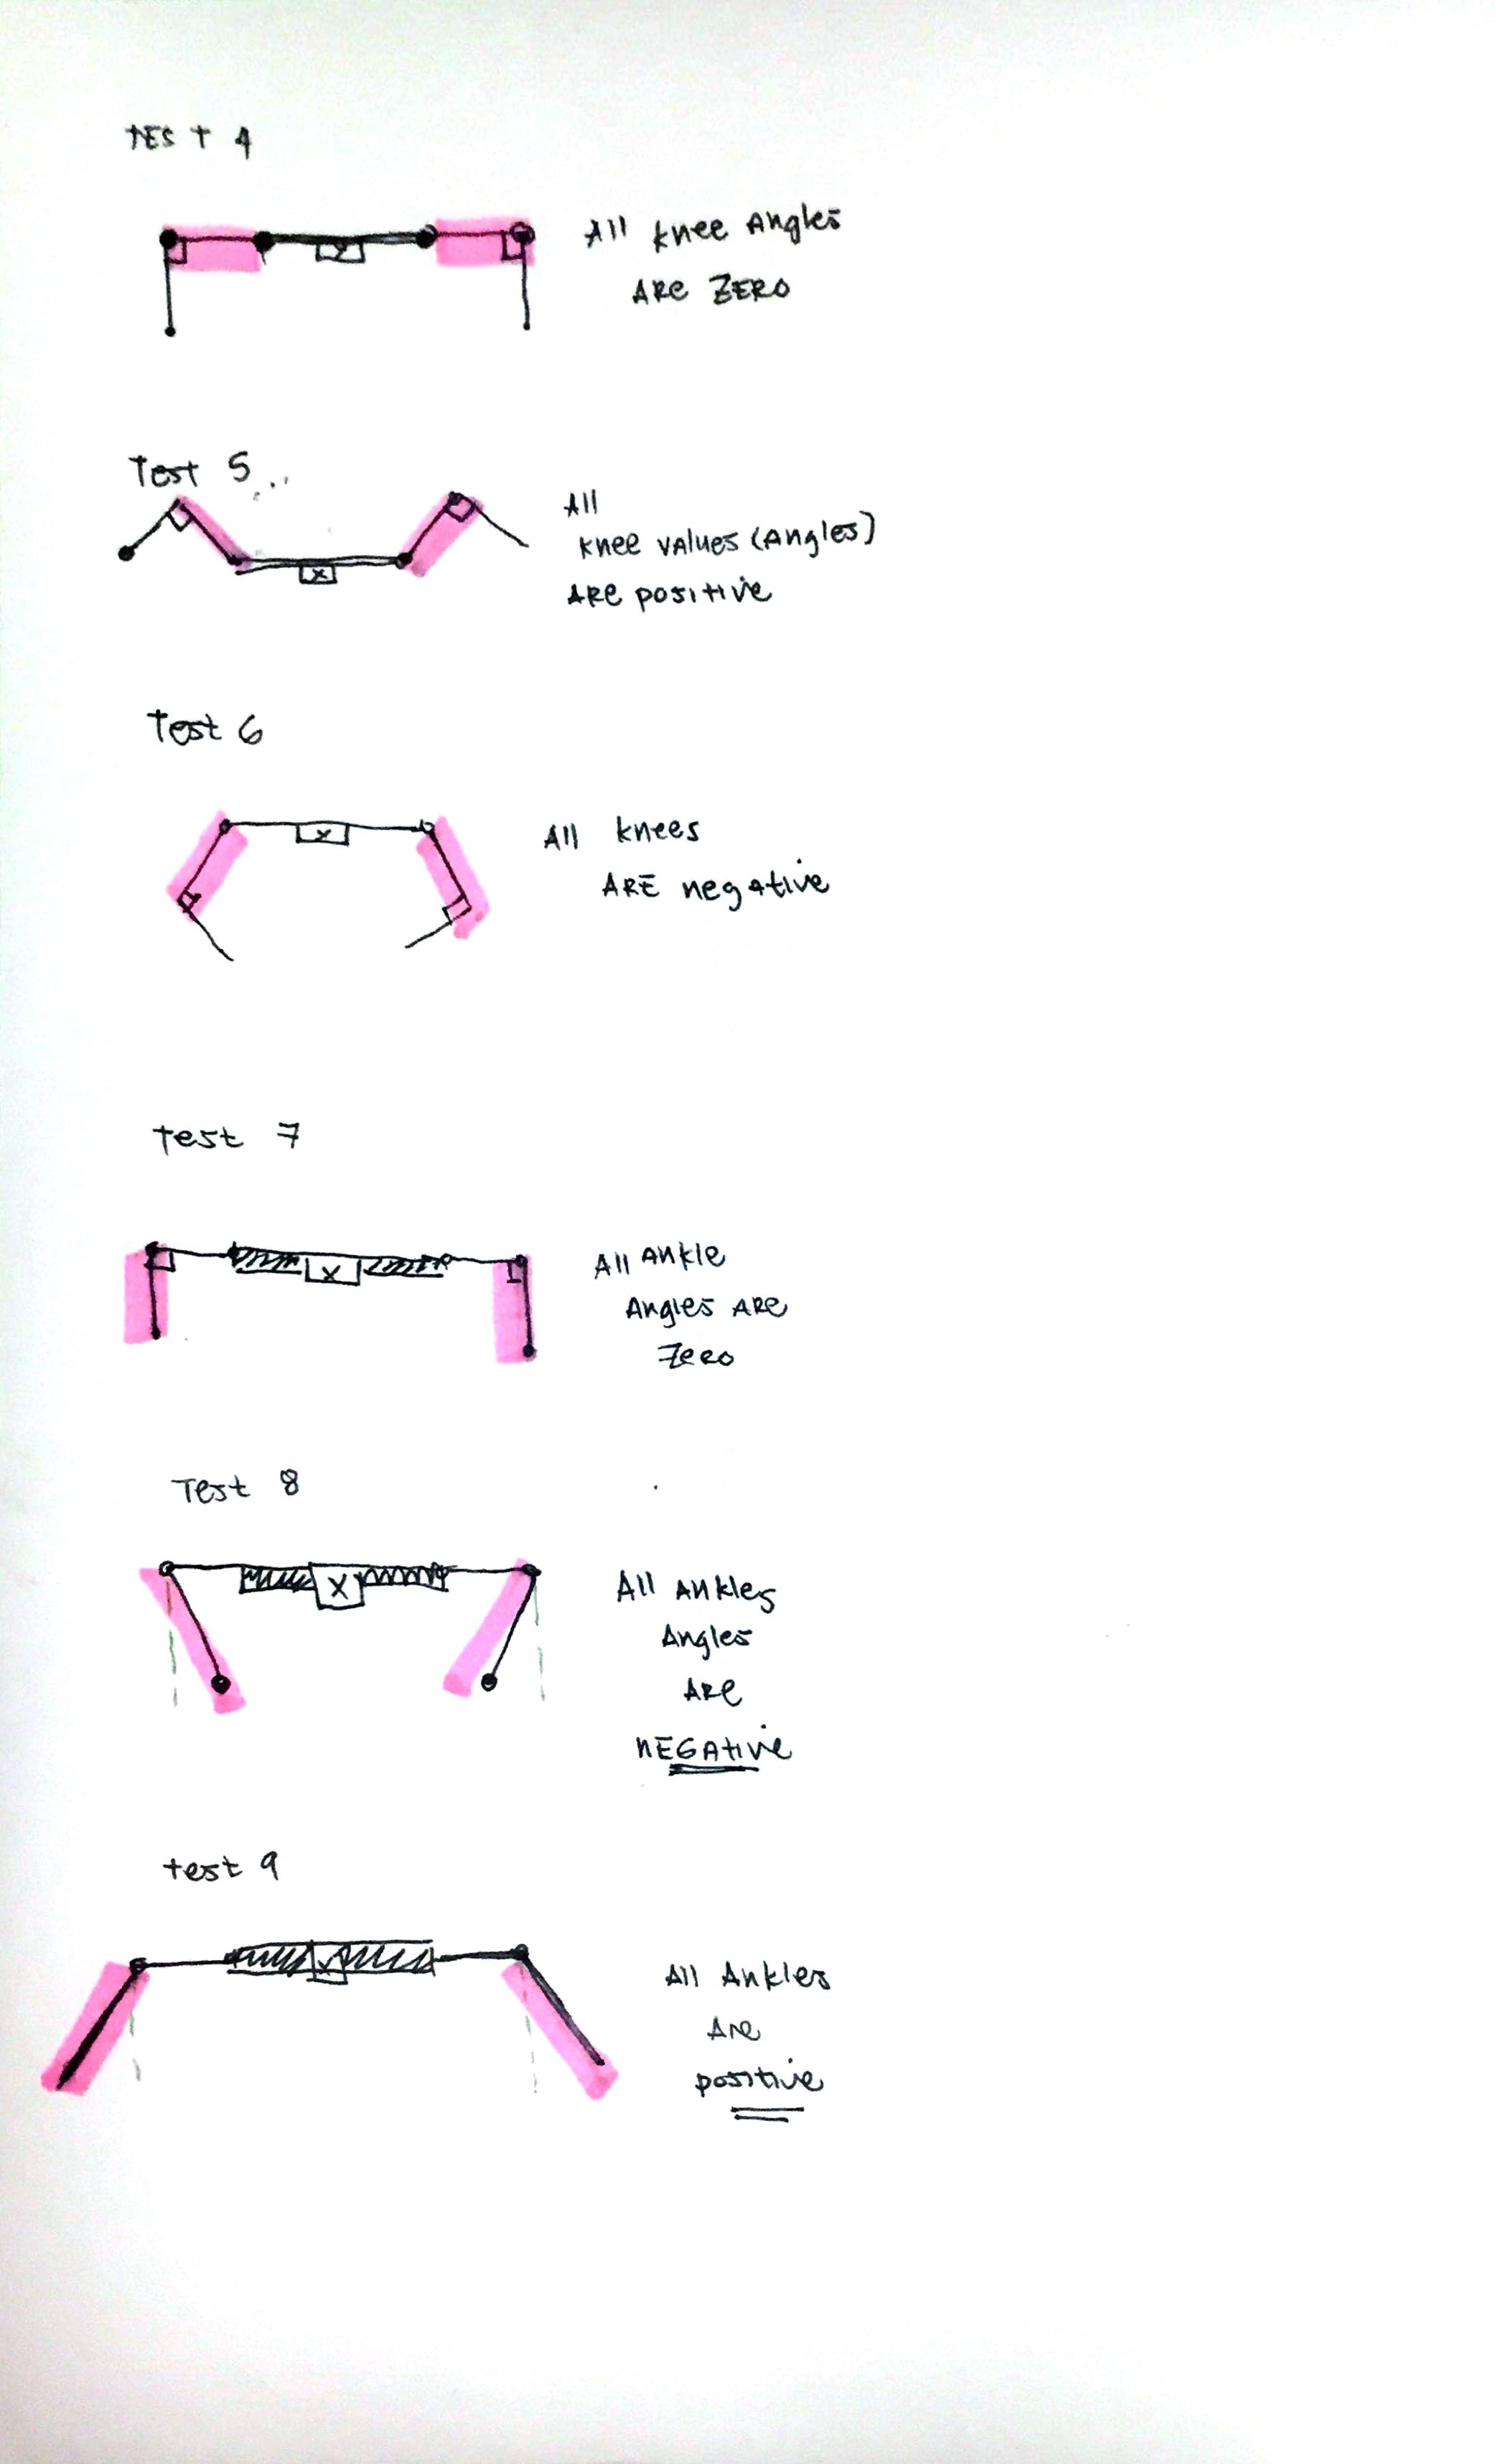 TEST 4
All knee Angles
ARe ZERO
Test 5
All
knee vAlues (Angles)
ARe positive
Test 6
All knees
ARE negative
X
Test 7
All Ankle
Angles ARe
Zero
X
Test 8
All Ankles
Angles
ARe
nEGAtive
X
test 9
All Ankles
Are
positive